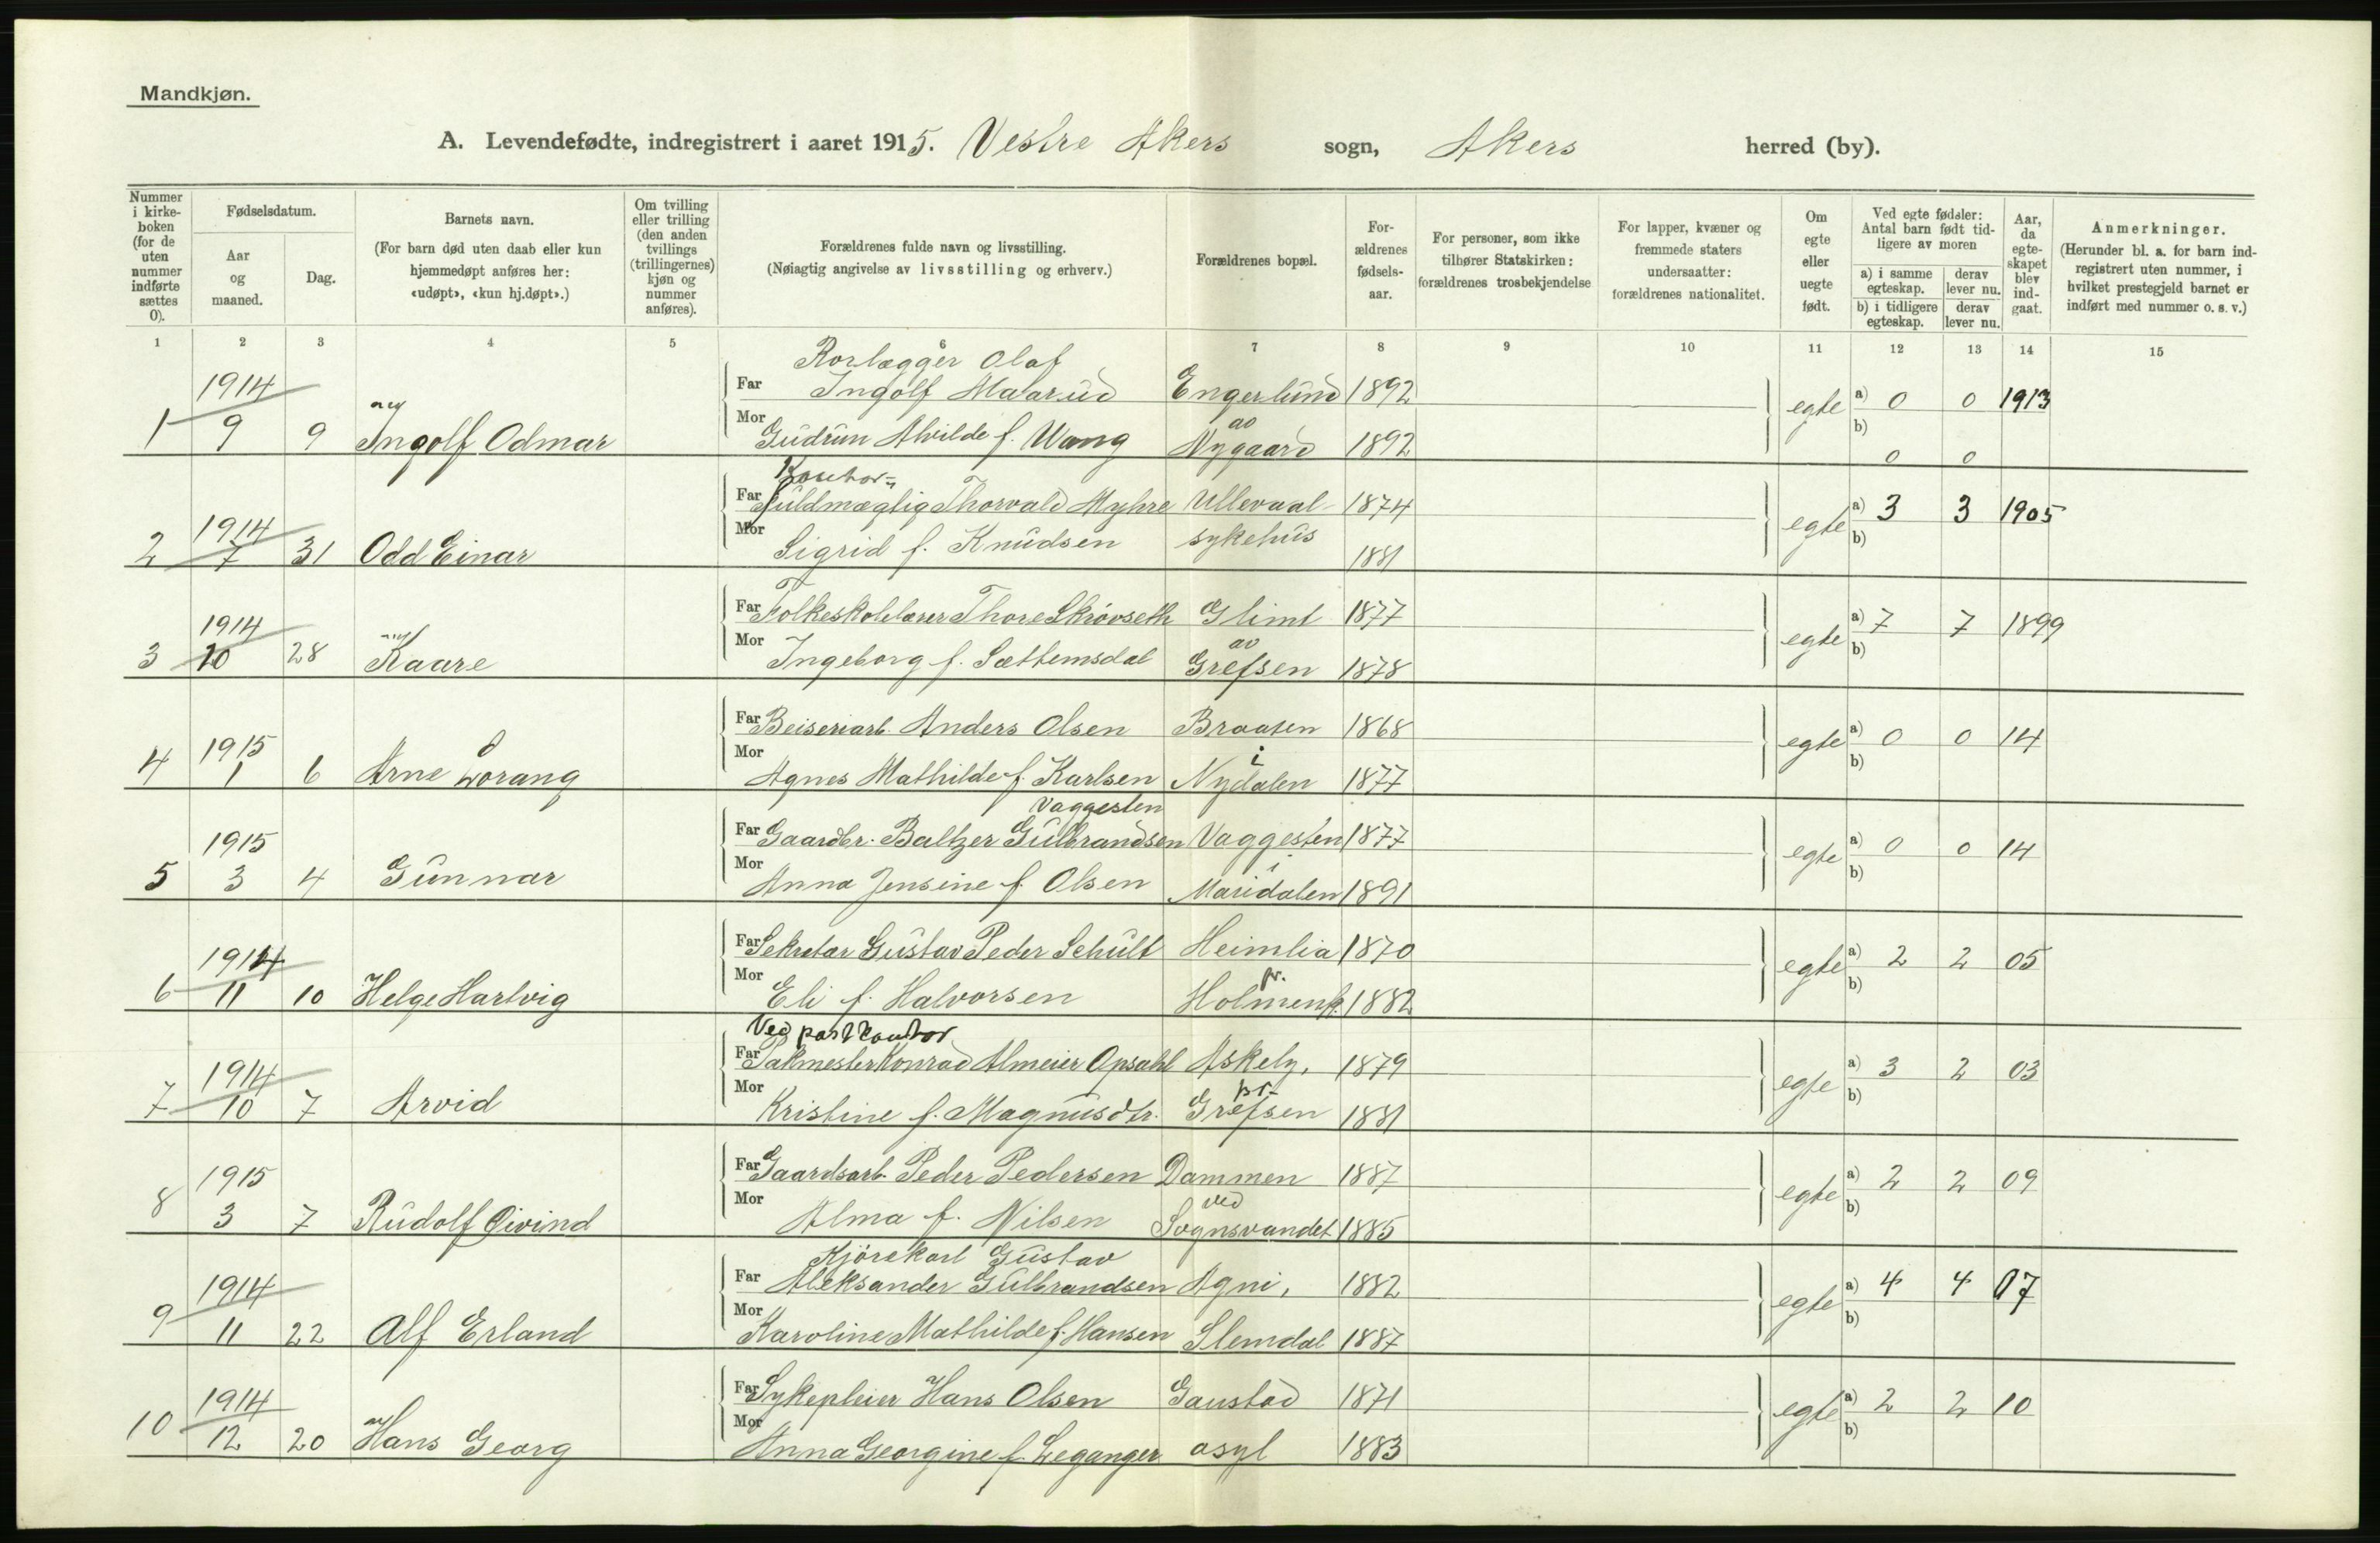 Mandkjøn.
A. Levendefødte, indregistrert i aaret 1915. Vestre Akers sogn, Akers herred (by).
Nummer i kirke-boken (for de uten nummer indførte sættes 0).
Fødselsdatum.
Aar og maaned.
Dag.
Barnets navn.
(For barn død uten daab eller kun hjemmedøpt anføres her: «udøpt», «kun hj.døpt».)
Om tvilling eller trilling (den anden tvillings (trillingernes) kjøn og nummer anføres).
Forældrenes fulde navn og livsstilling.
(Nøiagtig angivelse av livsstilling og erhverv.)
Forældrenes bopæl.
For-ældrenes fødsels-aar.
For personer, som ikke tilhører Statskirken: forældrenes trosbekjendelse
For lapper, kvæner og fremmede staters undersaatter: forældrenes nationalitet.
Om egte eller uegte født.
Ved egte fødsler: Antal barn født tid-ligere av moren
a) i samme egteskap.
derav lever nu.
b) i tidligere egteskap.
derav lever nu.
Aar, da egte-skapet blev ind-gaat.
Anmerkninger.
(Herunder bl. a. for barn ind-registrert uten nummer, i hvilket prestegjeld barnet er indført med nummer o. s. v.)
1 2 3 4 5 6 7 8 9 10 11 12 13 14 15
Rørlægger Olaf
1914 Far Ingolf Maarud Engerlund 1892 egte a) 0 0 1913
1 9 9 Ingolf Odmar Mor Gudrun Alvilde f. Wang av Nygaard 1892 b) 0 0
Kontor-
1914 Far fuldmægtig Thorvald Myhre Ullevaal 1874 egte a) 3 3 1905
2 7 31 Odd Einar Mor Sigrid f. Knudsen sykehus 1881 b)
1914 Far Folkeskolelærer Thore Skrövseth Glimt 1877 egte a) 7 7 1899
3 10 28 Kaare Mor Ingeborg f. Sættemsdal av Grefsen 1878 b)
1915 Far Beiseriarb. Anders Olsen Braaten 1868 egte a) 0 0 14
4 1 6 Arne Lorang Mor Agnes Mathilde f. Karlsen i Nydalen 1877 b)
Vaggesten
1915 Far Gaardbr. Baltzer Gulbrandsen Vaggesten 1877 egte a) 0 0 14
5 3 4 Gunnar Mor Anna Jensine f. Olsen i Maridalen 1891 b)
1914 Far Sekretær Gustav Peder Schult Heimlia 1870 egte a) 2 2 05
6 11 10 Helge Hartvig Mor Eli f. Halvorsen pr. Holmenk. 1882 b)
Ved postkontor
1914 Far Pakmester Konrad Almeier Opsahl Askely, 1879 egte a) 3 2 03
7 10 7 Arvid Mor Kristine f. Magnusdtr. pr. Grefsen 1881 b)
1915 Far Gaardsarb. Peder Pedersen Dammen 1887 egte a) 2 2 09
8 3 7 Rudolf Öivind Mor Alma f. Nilsen ved Sognsvandet 1885 b)
Kjörekarl Gustav
1914 Far Aleksander Gulbrandsen Agni, 1882 egte a) 4 4 07
9 11 22 Alf Erland Mor Karoline Mathilde f. Hansen Slemdal 1887 b)
1914 Far Sykepleier Hans Olsen Gaustad 1871 egte a) 2 2 10
10 12 20 Hans Georg Mor Anna Georgine f. Leganger asyl 1883 b)